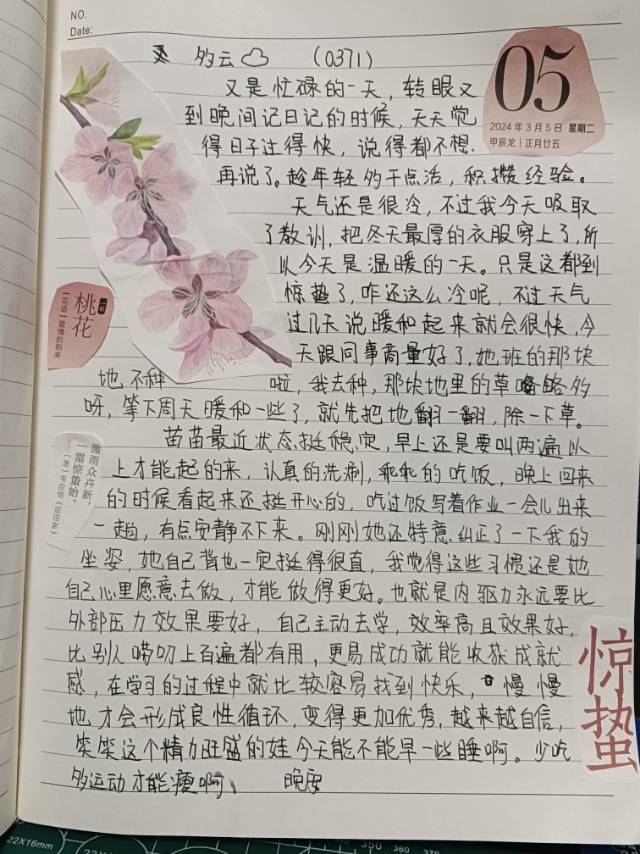 NO.
Date:
多云 (0371)
05
2024年3月5日 星期二
甲辰龙|正月廿五
又是忙碌的一天,转眼又
到晚间记日记的时候,天天觉
得日子过得快,说得都不想
再说了。趁年轻多干点活,积攒经验。
天气还是很冷,不过我今天吸取
了教训,把冬天最厚的衣服穿上了,所
以今天是温暖的一天。只是这都到
惊蛰了,咋还这么冷呢,不过天气
过几天说暖和起来就会很快,今
天跟同事商量好了,她班的那块
地不种啦,我去种,那块地里的草略多
呀,等下周天暖和一些了,就先把地翻一翻,除一下草。
桃花
【花语】爱情的到来
苗苗最近状态挺稳定,早上还是要叫两遍以
上才能起的来,认真的洗涮,乖乖的吃饭,晚上回来
的时候看起来还挺开心的,吃过饭写着作业一会儿出来
一趟,有点安静不下来。刚刚她还特意纠正了一下我的
坐姿,她自己背也一定挺得很直,我觉得这些习惯还是她
自己心里愿意去做,才能做得更好。也就是内驱力永远要比
外部压力效果要好,自己主动去学,效率高且效果好,
比别人唠叨上百遍都有用,更易成功就能收获成就
感,在学习的过程中就比较容易找到快乐,慢慢
地才会形成良性循环,变得更加优秀,越来越自信,
笑笑这个精力旺盛的娃今天能不能早一些睡啊。少吃
多运动才能瘦啊、 晚安
微雨众卉新,
一雷惊蛰始。
【唐】韦应物《观田家》
惊蛰
22X16mm
350
360